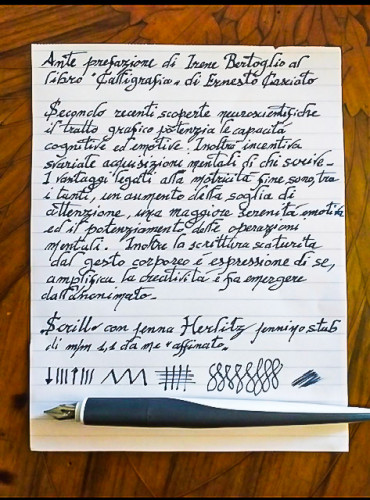 Ante prefazione di Irene Bertoglio al
libro "Calligrafia" di Ernesto Casciato
Secondo recenti scoperte neuroscientifiche
il tratto grafico potenzia le capacità
cognitive ed emotive. Inoltre incentiva
svariate acquisizione mentali di chi scrive.
I vantaggi legati alla motricità fine sono, tra
i tanti, un aumento della soglia di
attenzione, una maggiore serenità emotiva
ed il potenziamento delle operazioni
mentali. Inoltre la scrittura scaturita
dal gesto corporeo è espressione di se,
amplifica la creatività e fa emergere
dall'anonimato.
Scritto con penna Herlitz pennino stub
di m/m 1,1 da me "affinato"